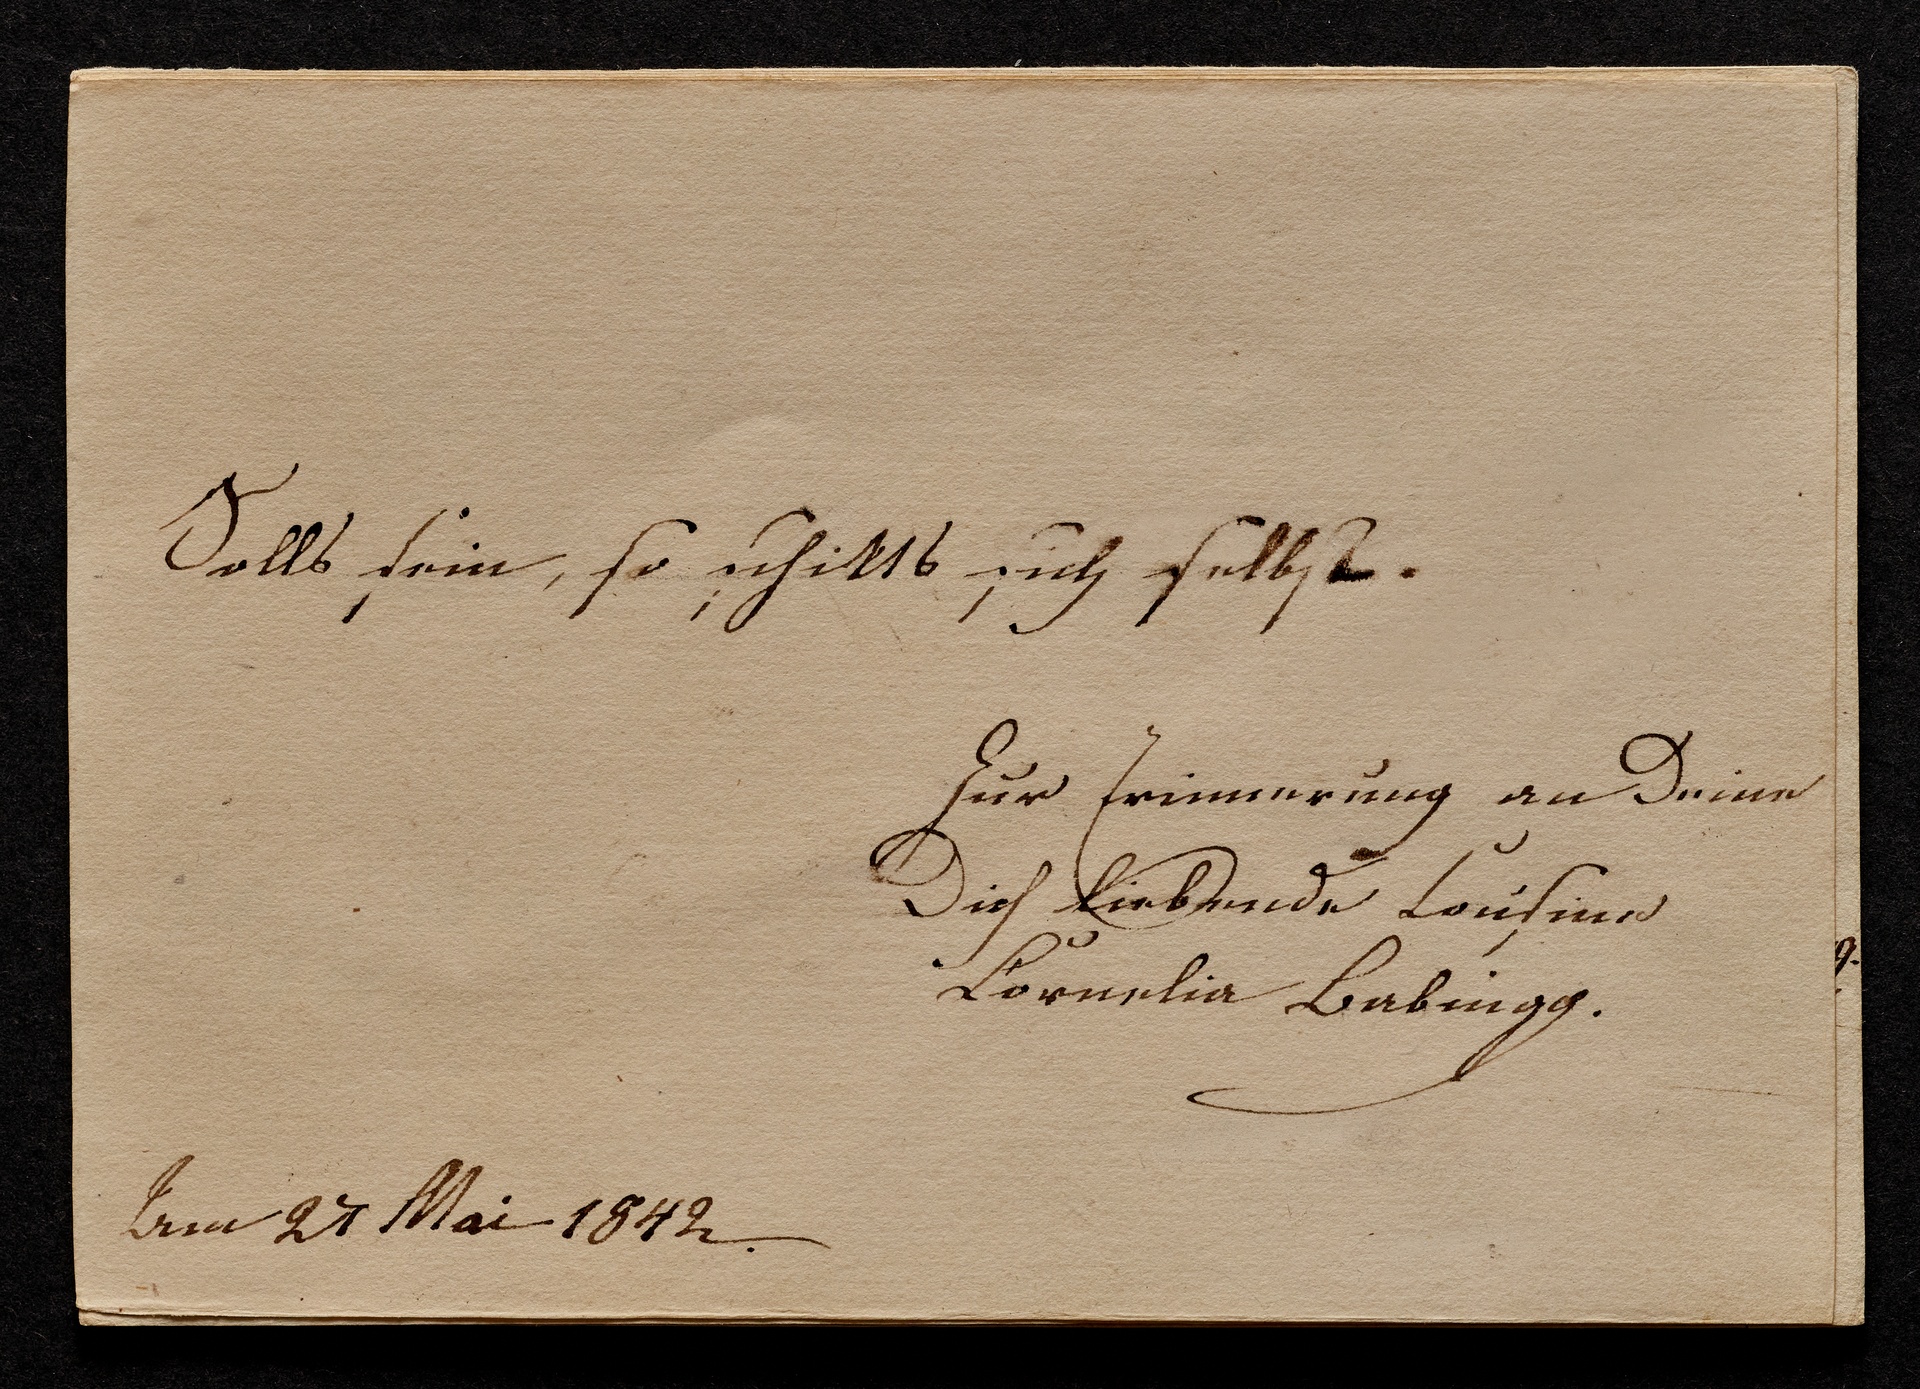 Solls sein, so schikts sich selbst.
Zur Erinnerung an Deine
Dich liebende Cousine
Cornelia Babingg.
Am 27 Mai 1842.